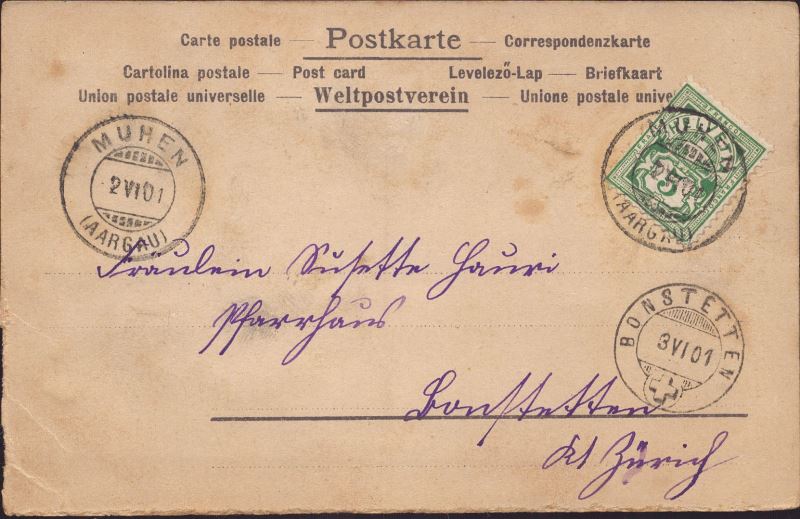 Carte postale — Postkarte — Correspondenzkarte
Cartolina postale — Post card Levelező-Lap — Briefkaart
Union postale universelle — Weltpostverein — Unione postale unive
MUHEN
2 VI 01
(AARGAU)
MUHEN
(AARGAU)
5
Fräulein Susette Hauri
Pfarrhaus
BONSTETTEN
3 VI 01
Bonstetten
Kt Zürich